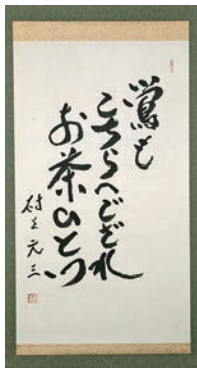 鶯も
こちらへござれ
お茶ひとつ
村上元三